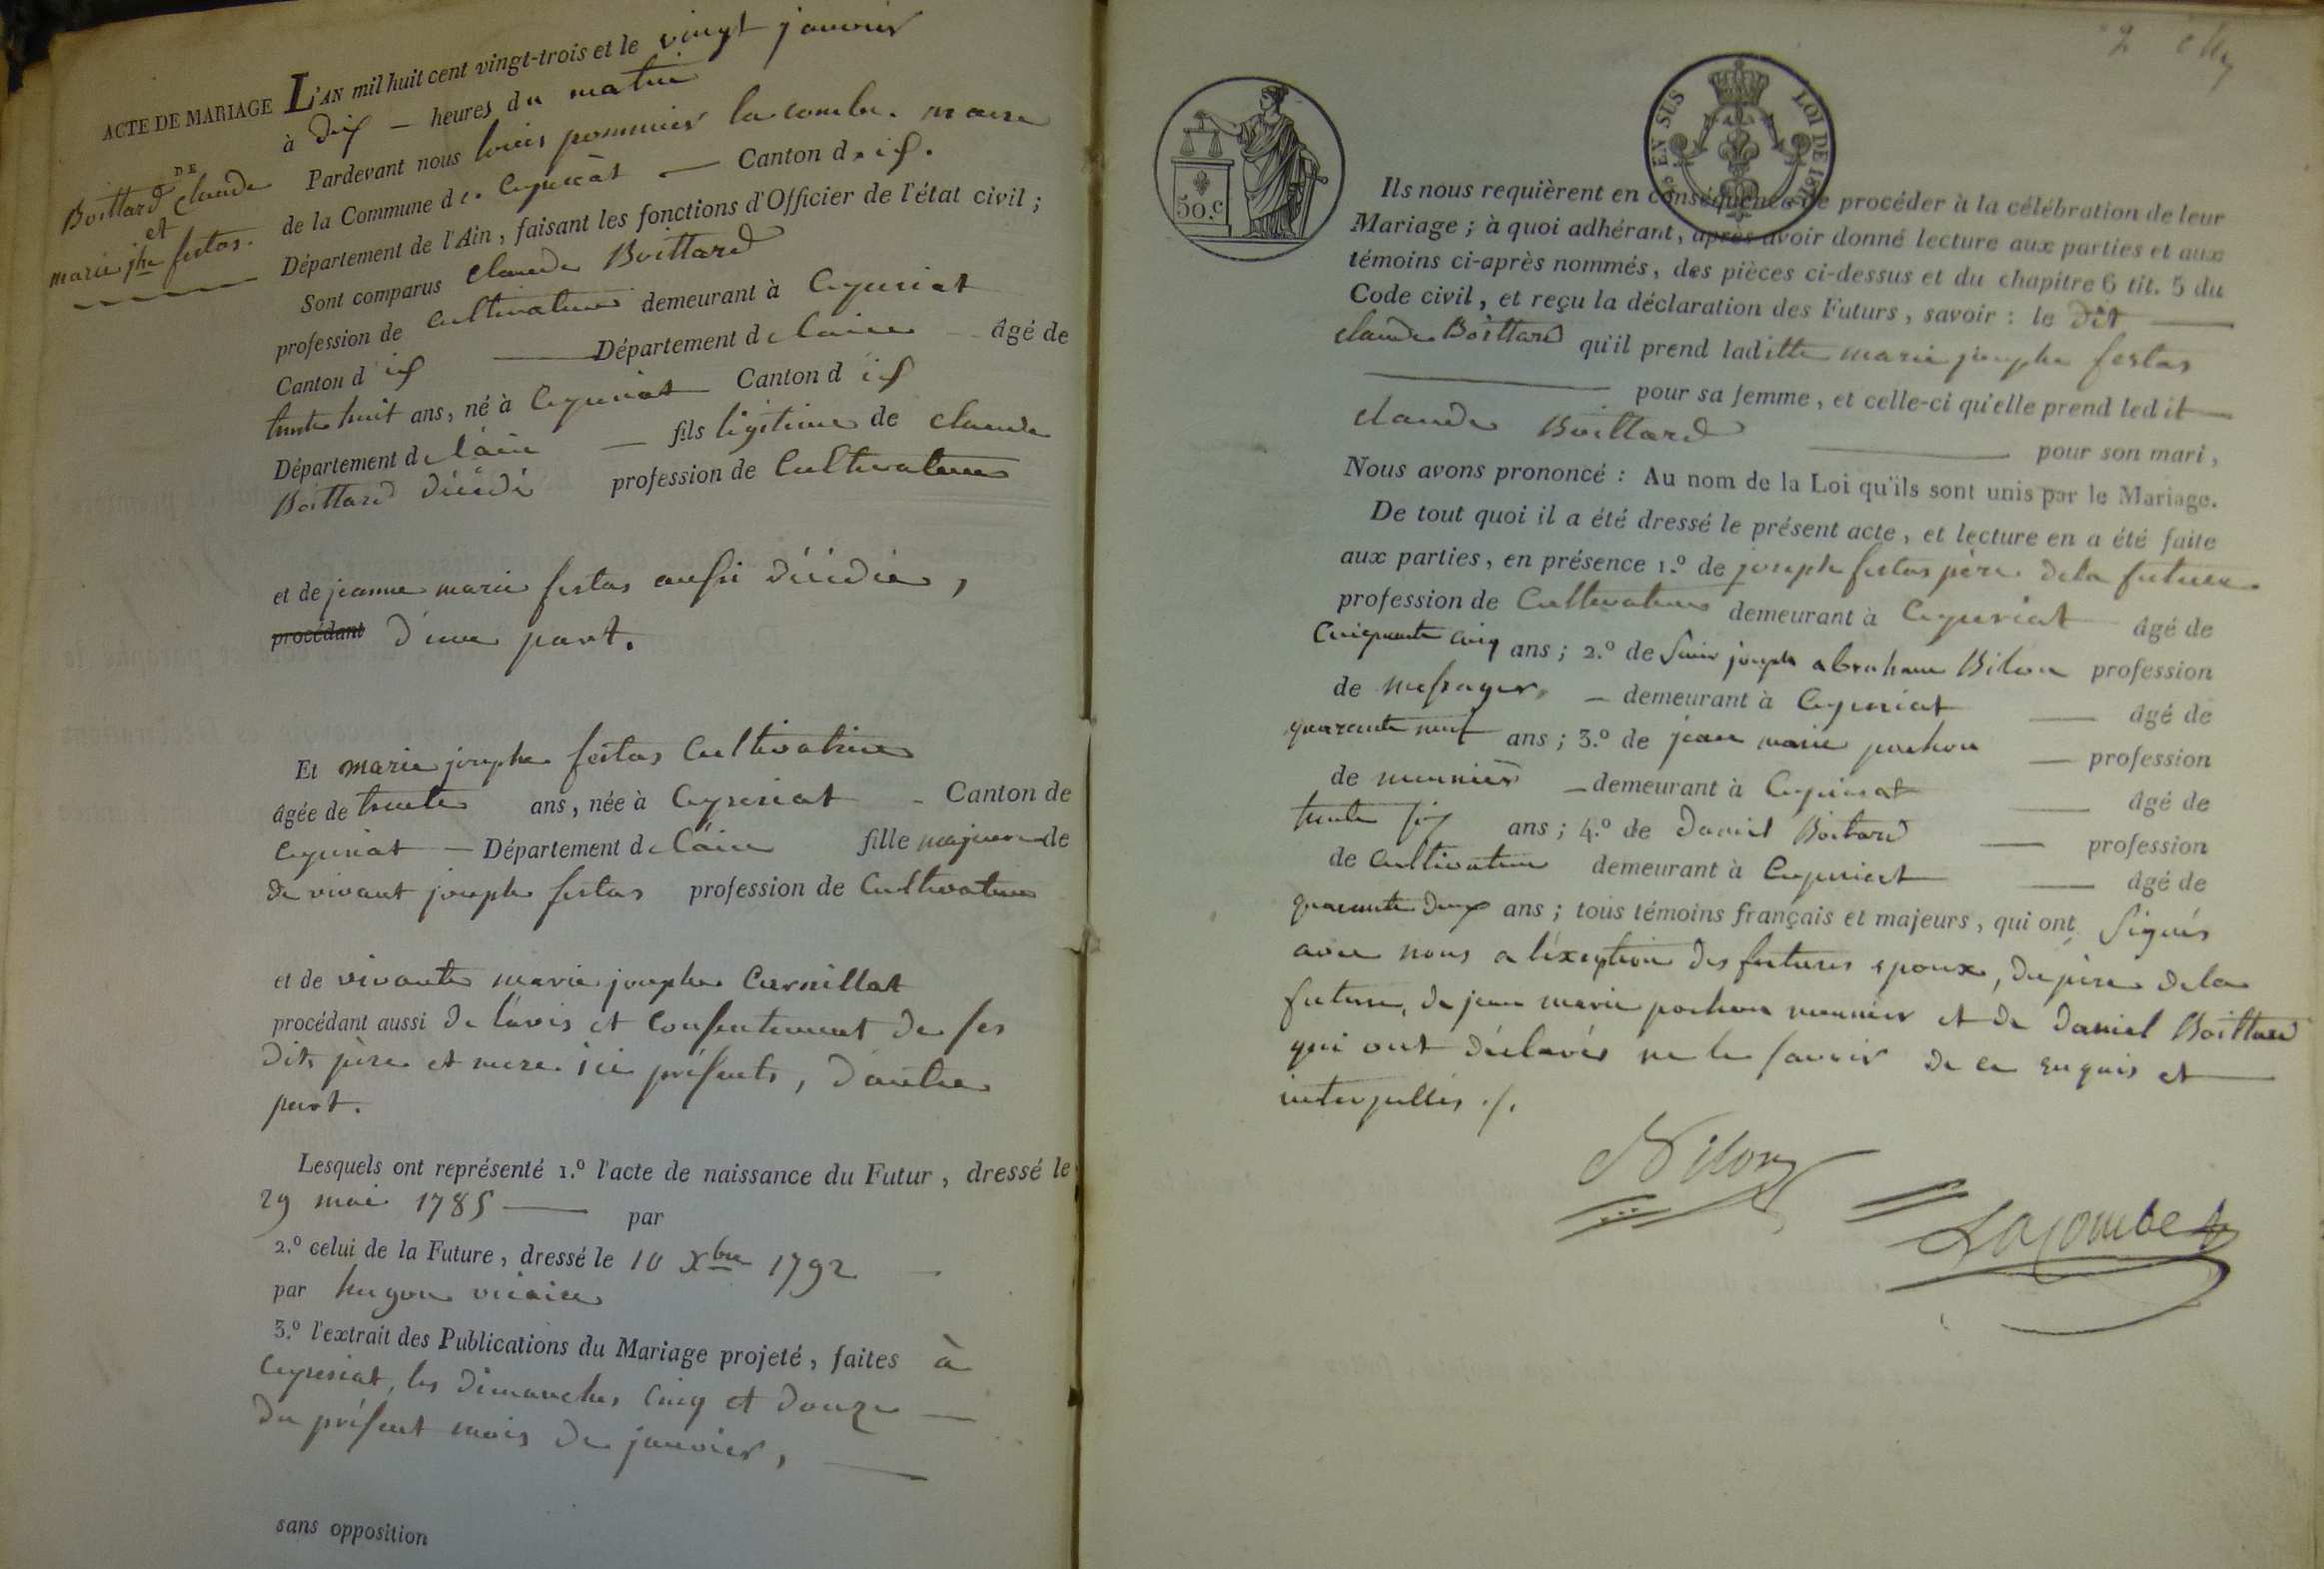 ACTE DE MARIAGE
DE
Boittard claude
et
marie jhe festas.
L'AN mil huit cent vingt-trois et le vingt janvier
à dix — heures du matin
Pardevant nous louis pommier lacombe. maire
de la Commune de. Ceyzeriat — Canton d. id.
Département de l'Ain, faisant les fonctions d'Officier de l'état civil;
Sont comparus claude Boittard
profession de cultivateur demeurant à Ceyzeriat
Canton d id — Département de lain âgé de
trente huit ans, né à Ceyzeriat Canton d id
Département de lain — fils légitime de claude
Boittard décédé profession de Cultivateur
et de jeanne marie festas aussi décédée,
procédant d'une part.
Et marie josephe festas Cultivatrice
âgée de trente ans, née à Ceyzeriat - Canton de
Ceyzeriat — Département de lain fille majeure de
de vivant joseph festas profession de Cultivateur
et de vivante marie josephe Curnillat
procédant aussi de lavis et Consentement de ses
dits père et mere ici présents, d'autre
part.
Lesquels ont représenté 1.º l'acte de naissance du Futur, dressé le
29 mai 1785 — par
2.º celui de la Future, dressé le 10 Xbre 1792
par hugon vicaire
3.º l'extrait des Publications du Mariage projeté, faites à
Ceyzeriat, les dimanches Cinq et douze —
du présent mois de janvier, —
sans opposition
2
50.C
EN SUS
LOI DE 1816
Ils nous requièrent en conséquence de procéder à la célébration de leur
Mariage; à quoi adhérant, après avoir donné lecture aux parties et aux
témoins ci-après nommés, des pièces ci-dessus et du chapitre 6 tit. 5 du
Code civil, et reçu la déclaration des Futurs, savoir: le dit —
claude Boittard qu'il prend laditte marie josephe festas
— pour sa femme, et celle-ci qu'elle prend ledit —
claude Boittard — pour son mari,
Nous avons prononcé: Au nom de la Loi qu'ils sont unis par le Mariage.
De tout quoi il a été dressé le présent acte, et lecture en a été faite
aux parties, en présence 1.º de joseph festas père de la future
profession de Cultivateur demeurant à Ceyzeriat âgé de
Cinquante cinq ans; 2.º de joseph abraham Bilon profession
de messager, — demeurant à Ceyzeriat — âgé de
quarante neuf ans; 3.º de jean marie pochon — profession
de meunier — demeurant à Ceyzeriat — âgé de
trente six ans; 4.º de Daniel Boitard — profession
de Cultivateur demeurant à Ceyzeriat — âgé de
quarante deux ans; tous témoins français et majeurs, qui ont signés
avec nous a l'éxception des futurs epoux, du père de la
future, de jean marie pochon meunier et de daniel Boittard
qui ont déclarés ne le savoir de ce enquis et —
interpellés ./.
Bilon
Lacombe